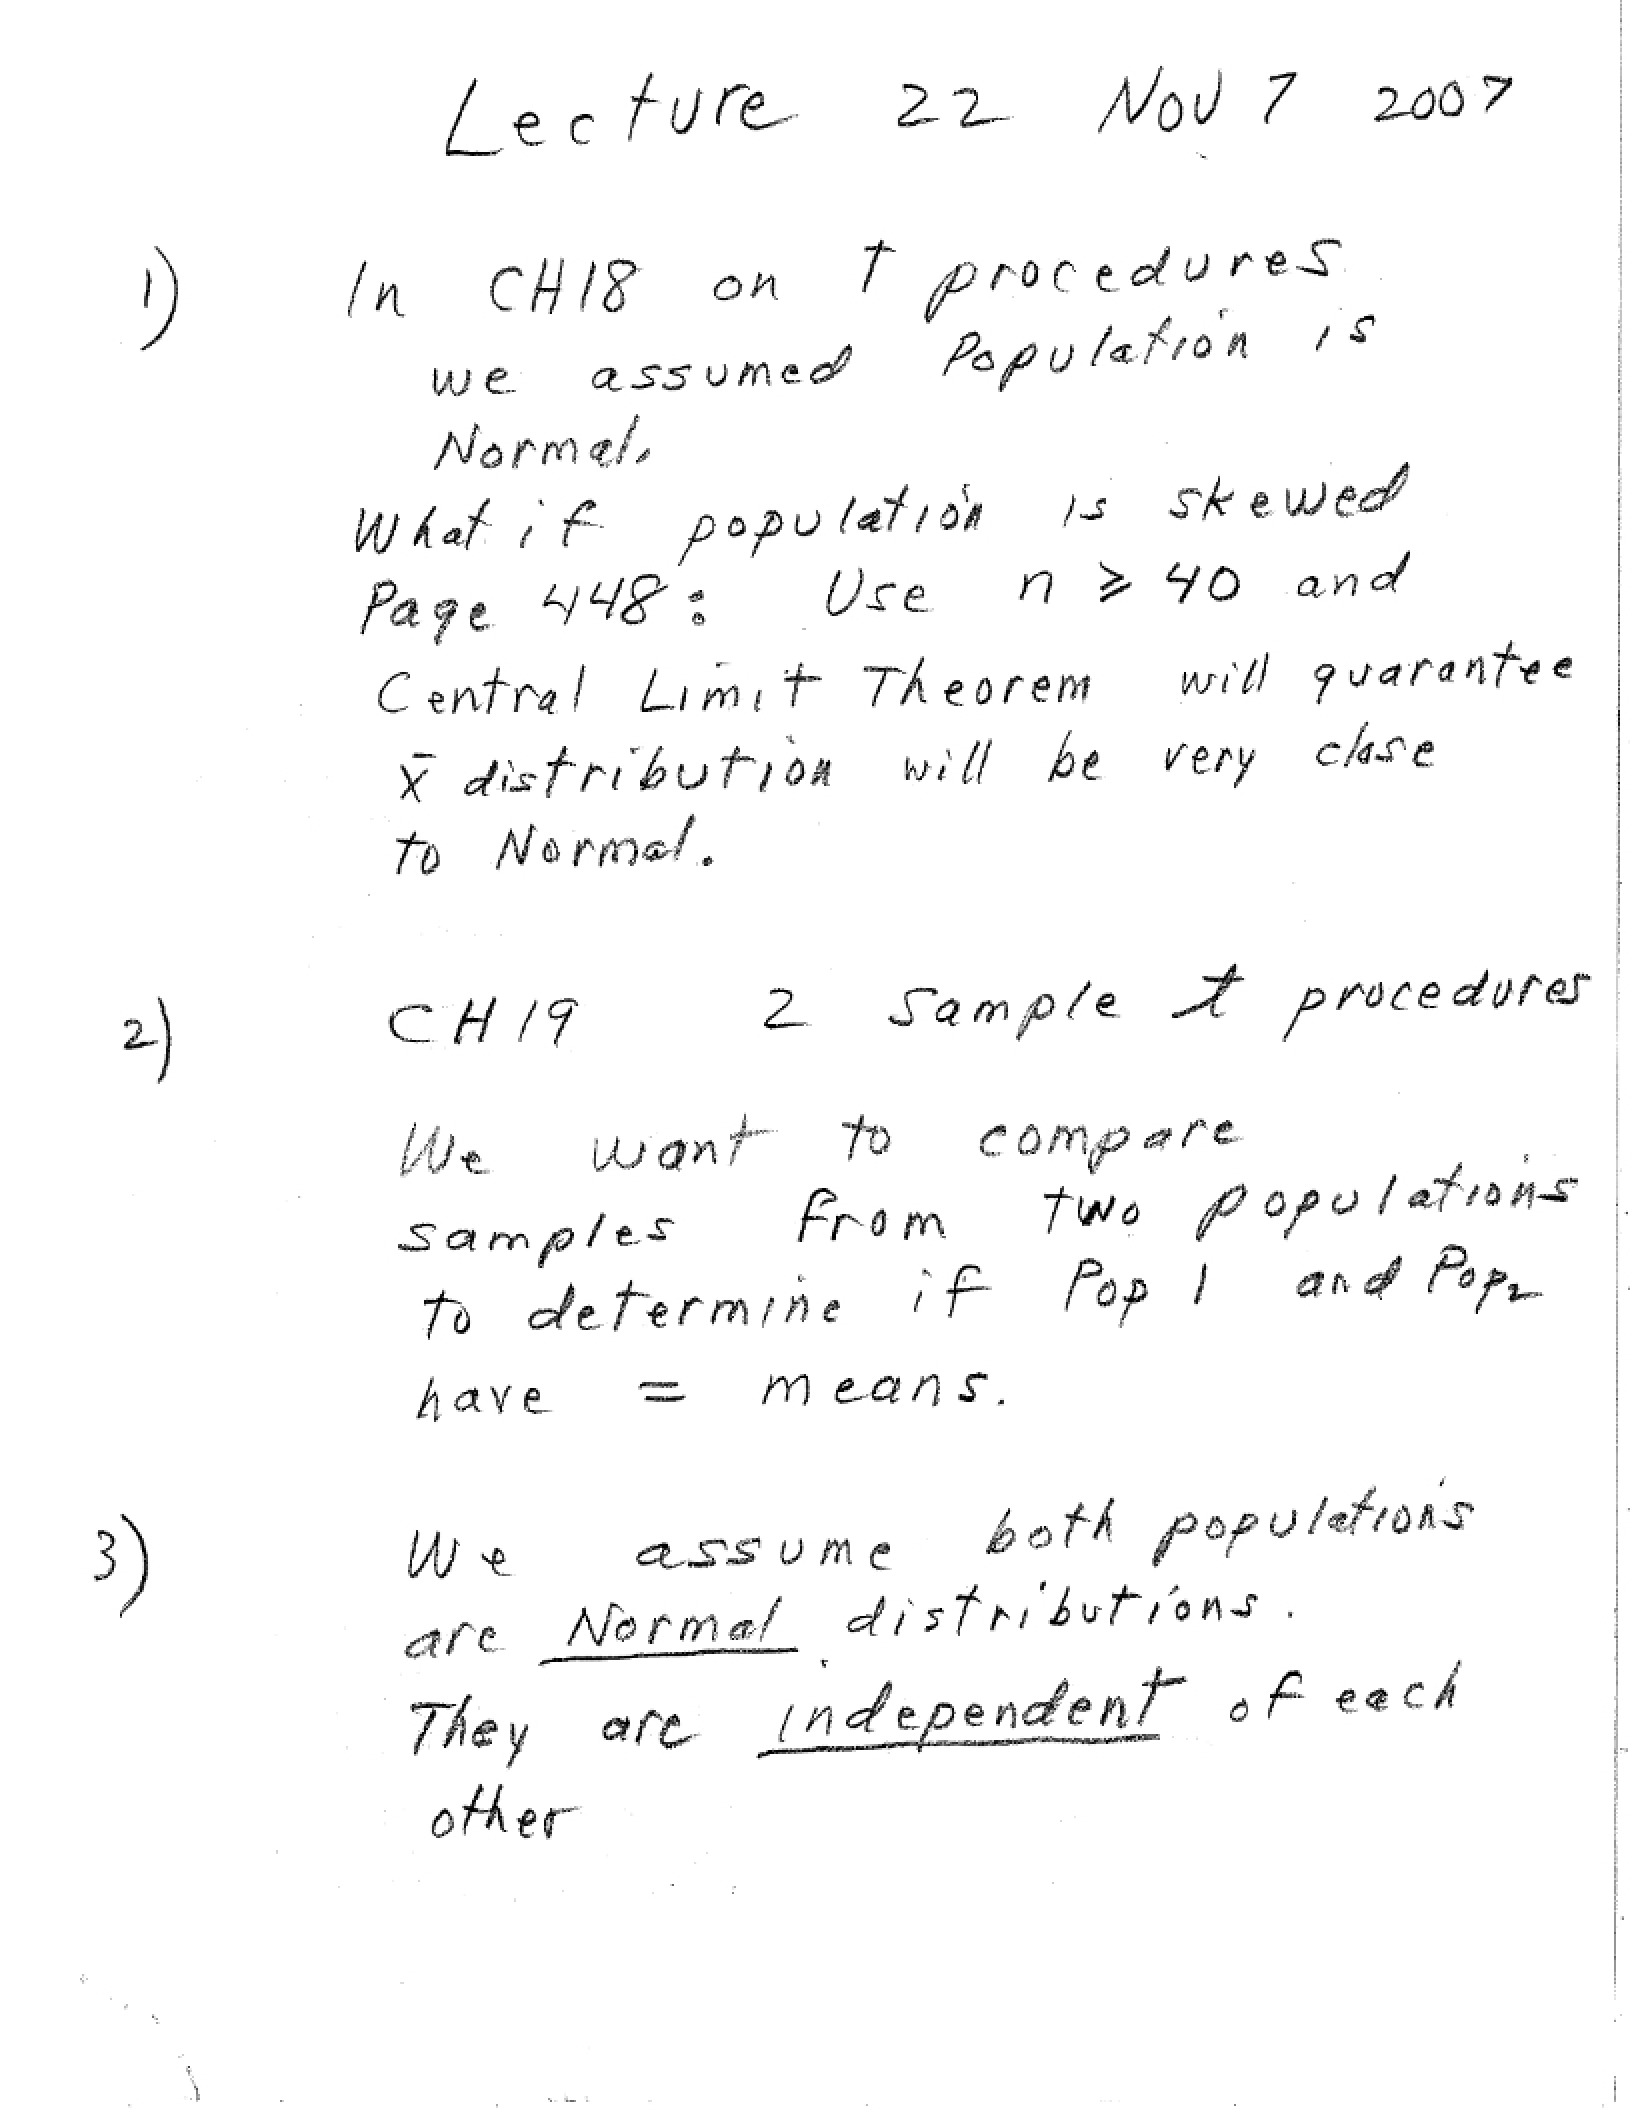 Lecture 22 Nov 7 2007
1) In CH18 on t procedures
we assumed Population is
Normal.
What if population is skewed
Page 448: Use n ≥ 40 and
Central Limit Theorem will guarantee
x̄ distribution will be very close
to Normal.
2) CH19 2 Sample t procedures
We want to compare
samples from two populations
to determine if Pop 1 and Pop2
have = means.
3) We assume both populations
are Normal distributions.
They are independent of each
other